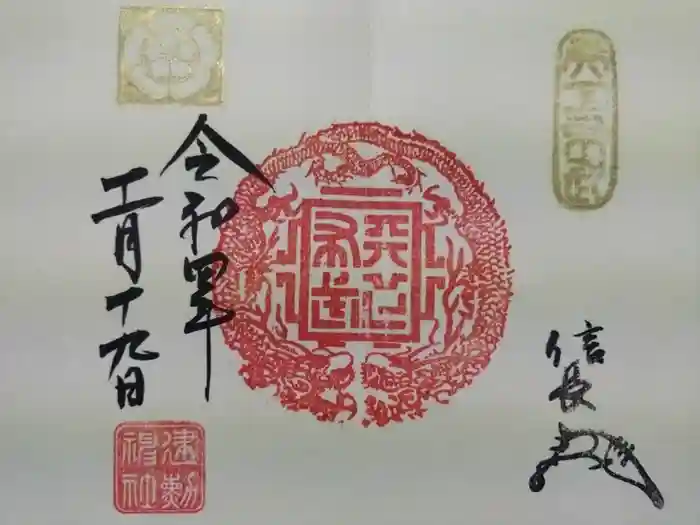 信長
天下
布武
令和四年
十一月十九日
建勲
神社